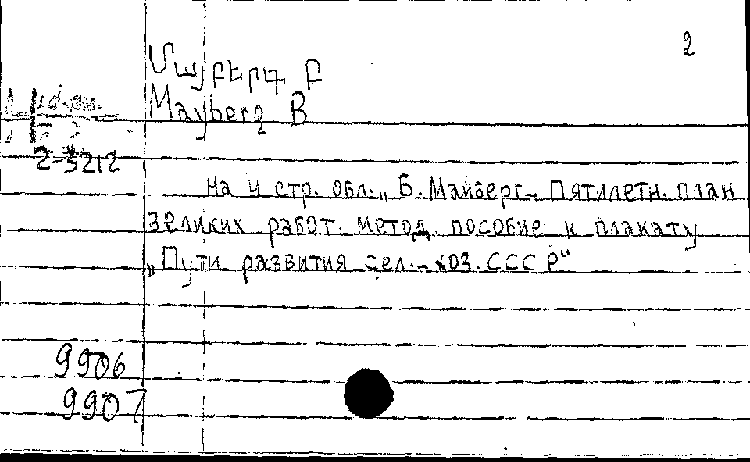 2
Մայբերգ Բ
Mayberg B
2-3212
На 4 стр. обл. „Б. Майберг. Пятилетн. план
великих работ. Метод. пособие к плакату
„Пути развития сел.-хоз. СССР“
9906
9907